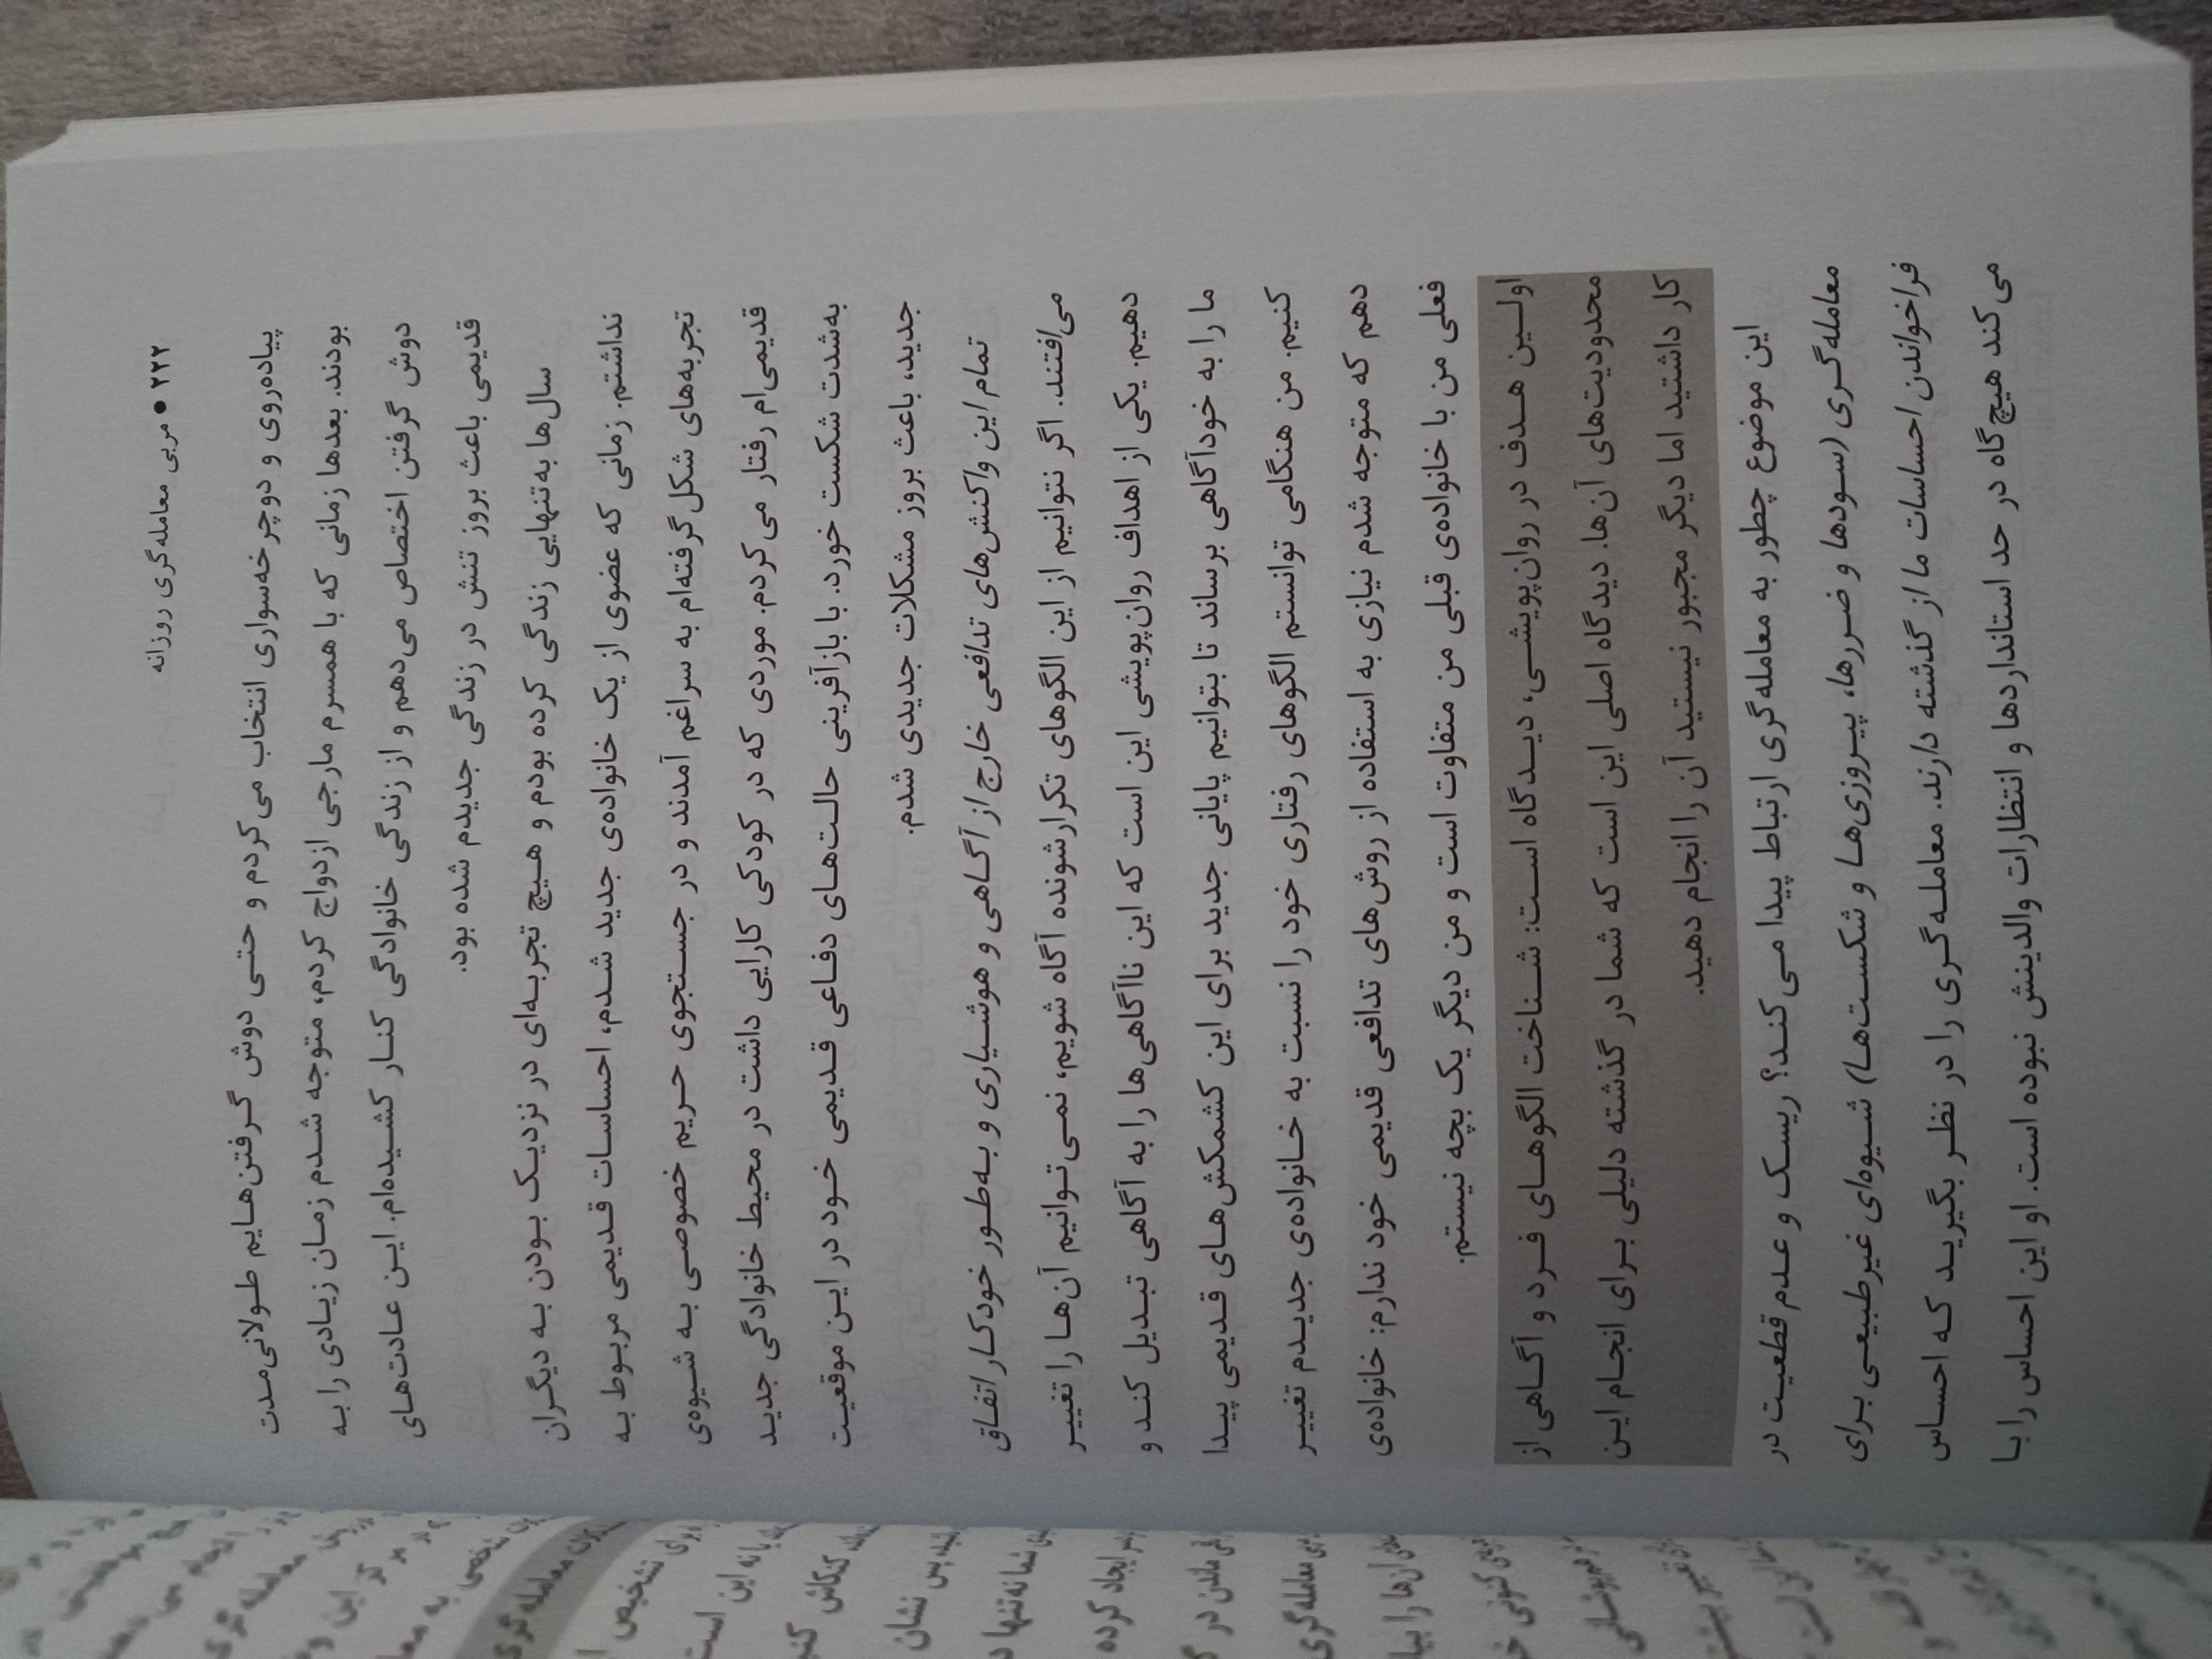 ۲۲۲ ● مربی معامله‌گری روزانه
پیاده‌روی و دوچرخه‌سواری انتخاب می‌کردم و حتی دوش گرفتن‌هایم طولانی‌مدت
بودند. بعدها زمانی که با همسرم مارجی ازدواج کردم، متوجه شدم زمان زیادی را به
دوش گرفتن اختصاص می‌دهم و از زندگی خانوادگی کنار کشیده‌ام. این عادت‌های
قدیمی باعث بروز تنش در زندگی جدیدم شده بود.
سال‌ها به‌تنهایی زندگی کرده بودم و هیچ تجربه‌ای در نزدیک بودن به دیگران
نداشتم. زمانی که عضوی از یک خانواده‌ی جدید شدم، احساسات قدیمی مربوط به
تجربه‌های شکل‌گرفته‌ام به سراغم آمدند و در جستجوی حریم خصوصی به شیوه‌ی
قدیمی‌ام رفتار می‌کردم. موردی که در کودکی کارایی داشت در محیط خانوادگی جدید
به‌شدت شکست خورد. با بازآفرینی حالت‌های دفاعی قدیمی خود در این موقعیت
جدید، باعث بروز مشکلات جدیدی شدم.
تمام این واکنش‌های تدافعی خارج از آگاهی و هوشیاری و به‌طور خودکار اتفاق
می‌افتند. اگر نتوانیم از این الگوهای تکرارشونده آگاه شویم، نمی‌توانیم آن‌ها را تغییر
دهیم. یکی از اهداف روان‌پویشی این است که این ناآگاهی‌ها را به آگاهی تبدیل کند و
ما را به خودآگاهی برساند تا بتوانیم پایانی جدید برای این کشمکش‌های قدیمی پیدا
کنیم. من هنگامی توانستم الگوهای رفتاری خود را نسبت به خانواده‌ی جدیدم تغییر
دهم که متوجه شدم نیازی به استفاده از روش‌های تدافعی قدیمی خود ندارم: خانواده‌ی
فعلی من با خانواده‌ی قبلی من متفاوت است و من دیگر یک بچه نیستم.
اولین هدف در روان‌پویشی، دیدگاه است: شناخت الگوهای فرد و آگاهی از
محدودیت‌های آن‌ها. دیدگاه اصلی این است که شما در گذشته دلیلی برای انجام این
کار داشتید اما دیگر مجبور نیستید آن را انجام دهید.
این موضوع چطور به معامله‌گری ارتباط پیدا می‌کند؟ ریسک و عدم قطعیت در
معامله‌گری (سودها و ضررها، پیروزی‌ها و شکست‌ها) شیوه‌ای غیرطبیعی برای
فراخواندن احساسات ما از گذشته دارند. معامله‌گری را در نظر بگیرید که احساس
می‌کند هیچ‌گاه در حد استانداردها و انتظارات والدینش نبوده است. او این احساس را با